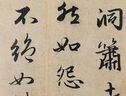 洞簫
然如怨
不絕如